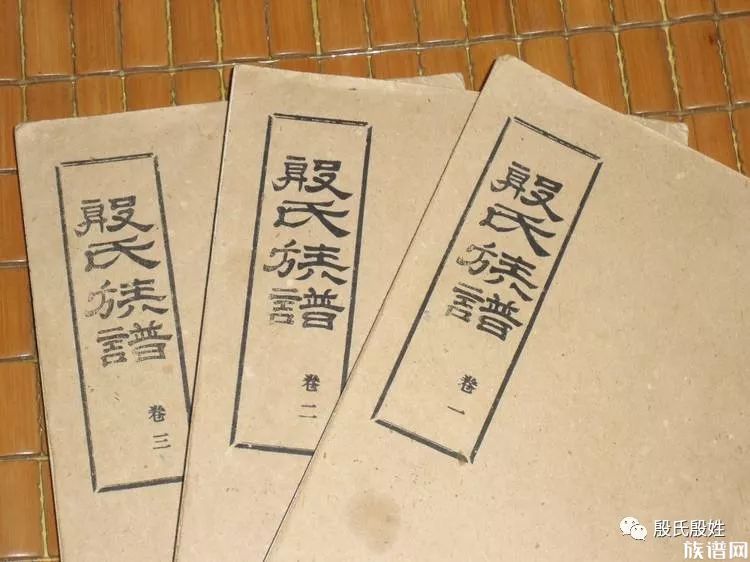 殷氏族譜
卷三
殷氏族譜
卷二
殷氏族譜
卷一
殷氏殷姓
族谱网